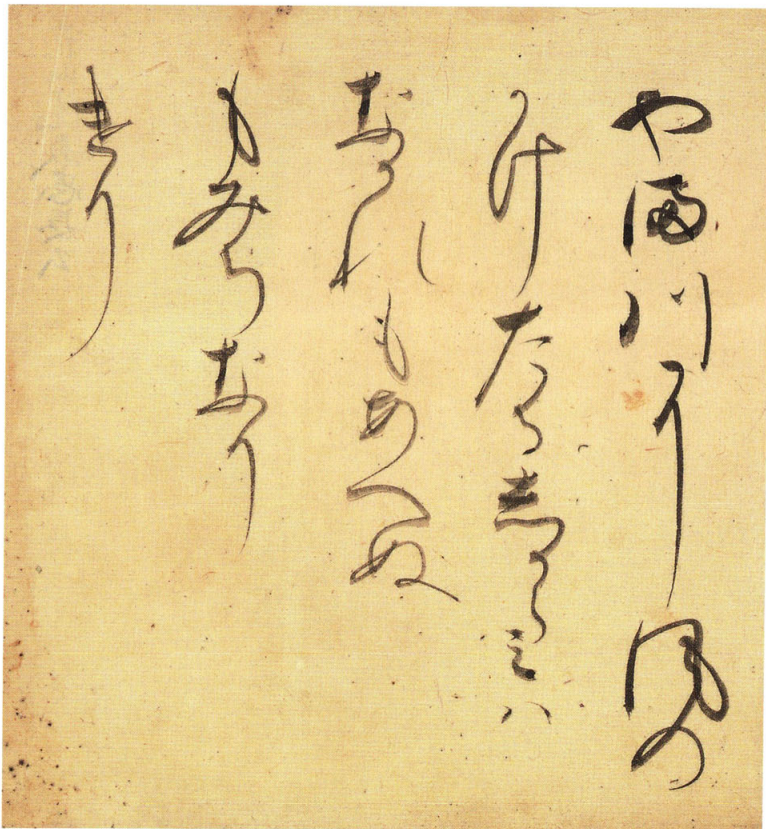 や満川尓風の
かけたる志からミハ
なかれもあへぬ
もみちなり
けり